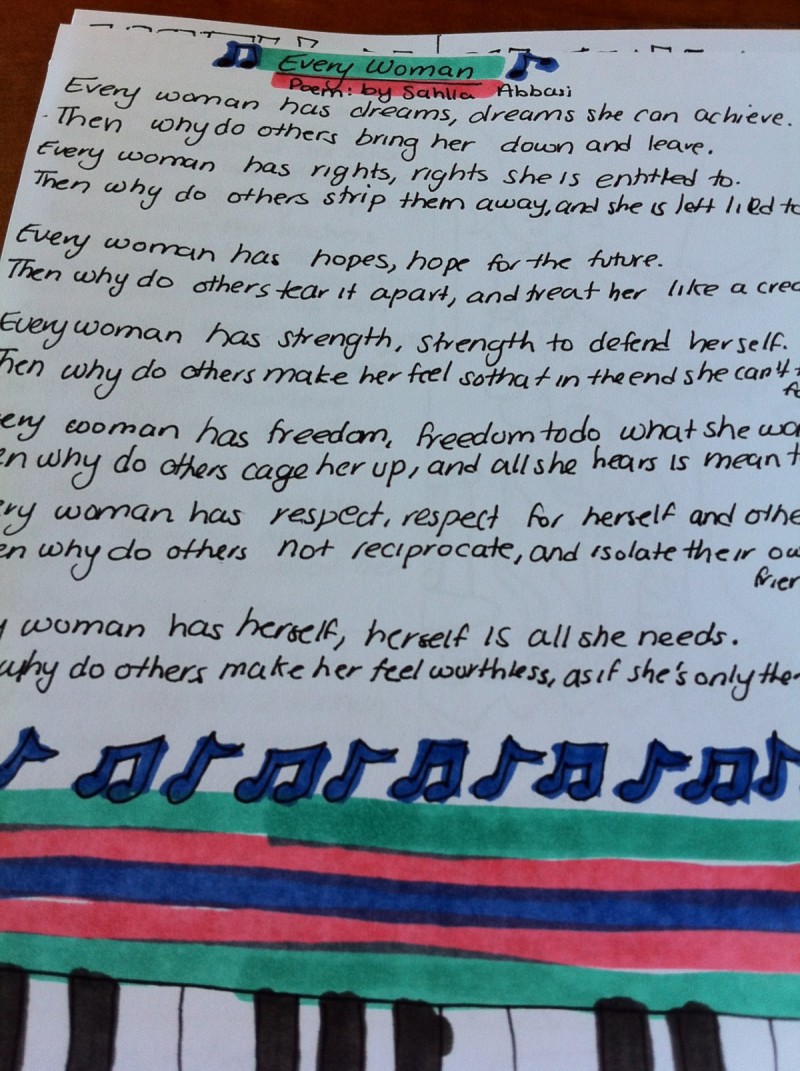 Every Woman
Poem: by Sahlia Abbasi
Every woman has dreams, dreams she can achieve.
Then why do others bring her down and leave.
Every woman has rights, rights she is entitled to.
Then why do others strip them away, and she is left lied to
Every woman has hopes, hope for the future.
Then why do others tear it apart, and treat her like a crea
Every woman has strength, strength to defend herself.
Then why do others make her feel so that in the end she can't
ery woman has freedom, freedom to do what she wa
en why do others cage her up, and all she hears is mean t
ry woman has respect, respect for herself and othe
en why do others not reciprocate, and isolate their ow
frien
y woman has herself, herself is all she needs.
why do others make her feel worthless, as if she's only the